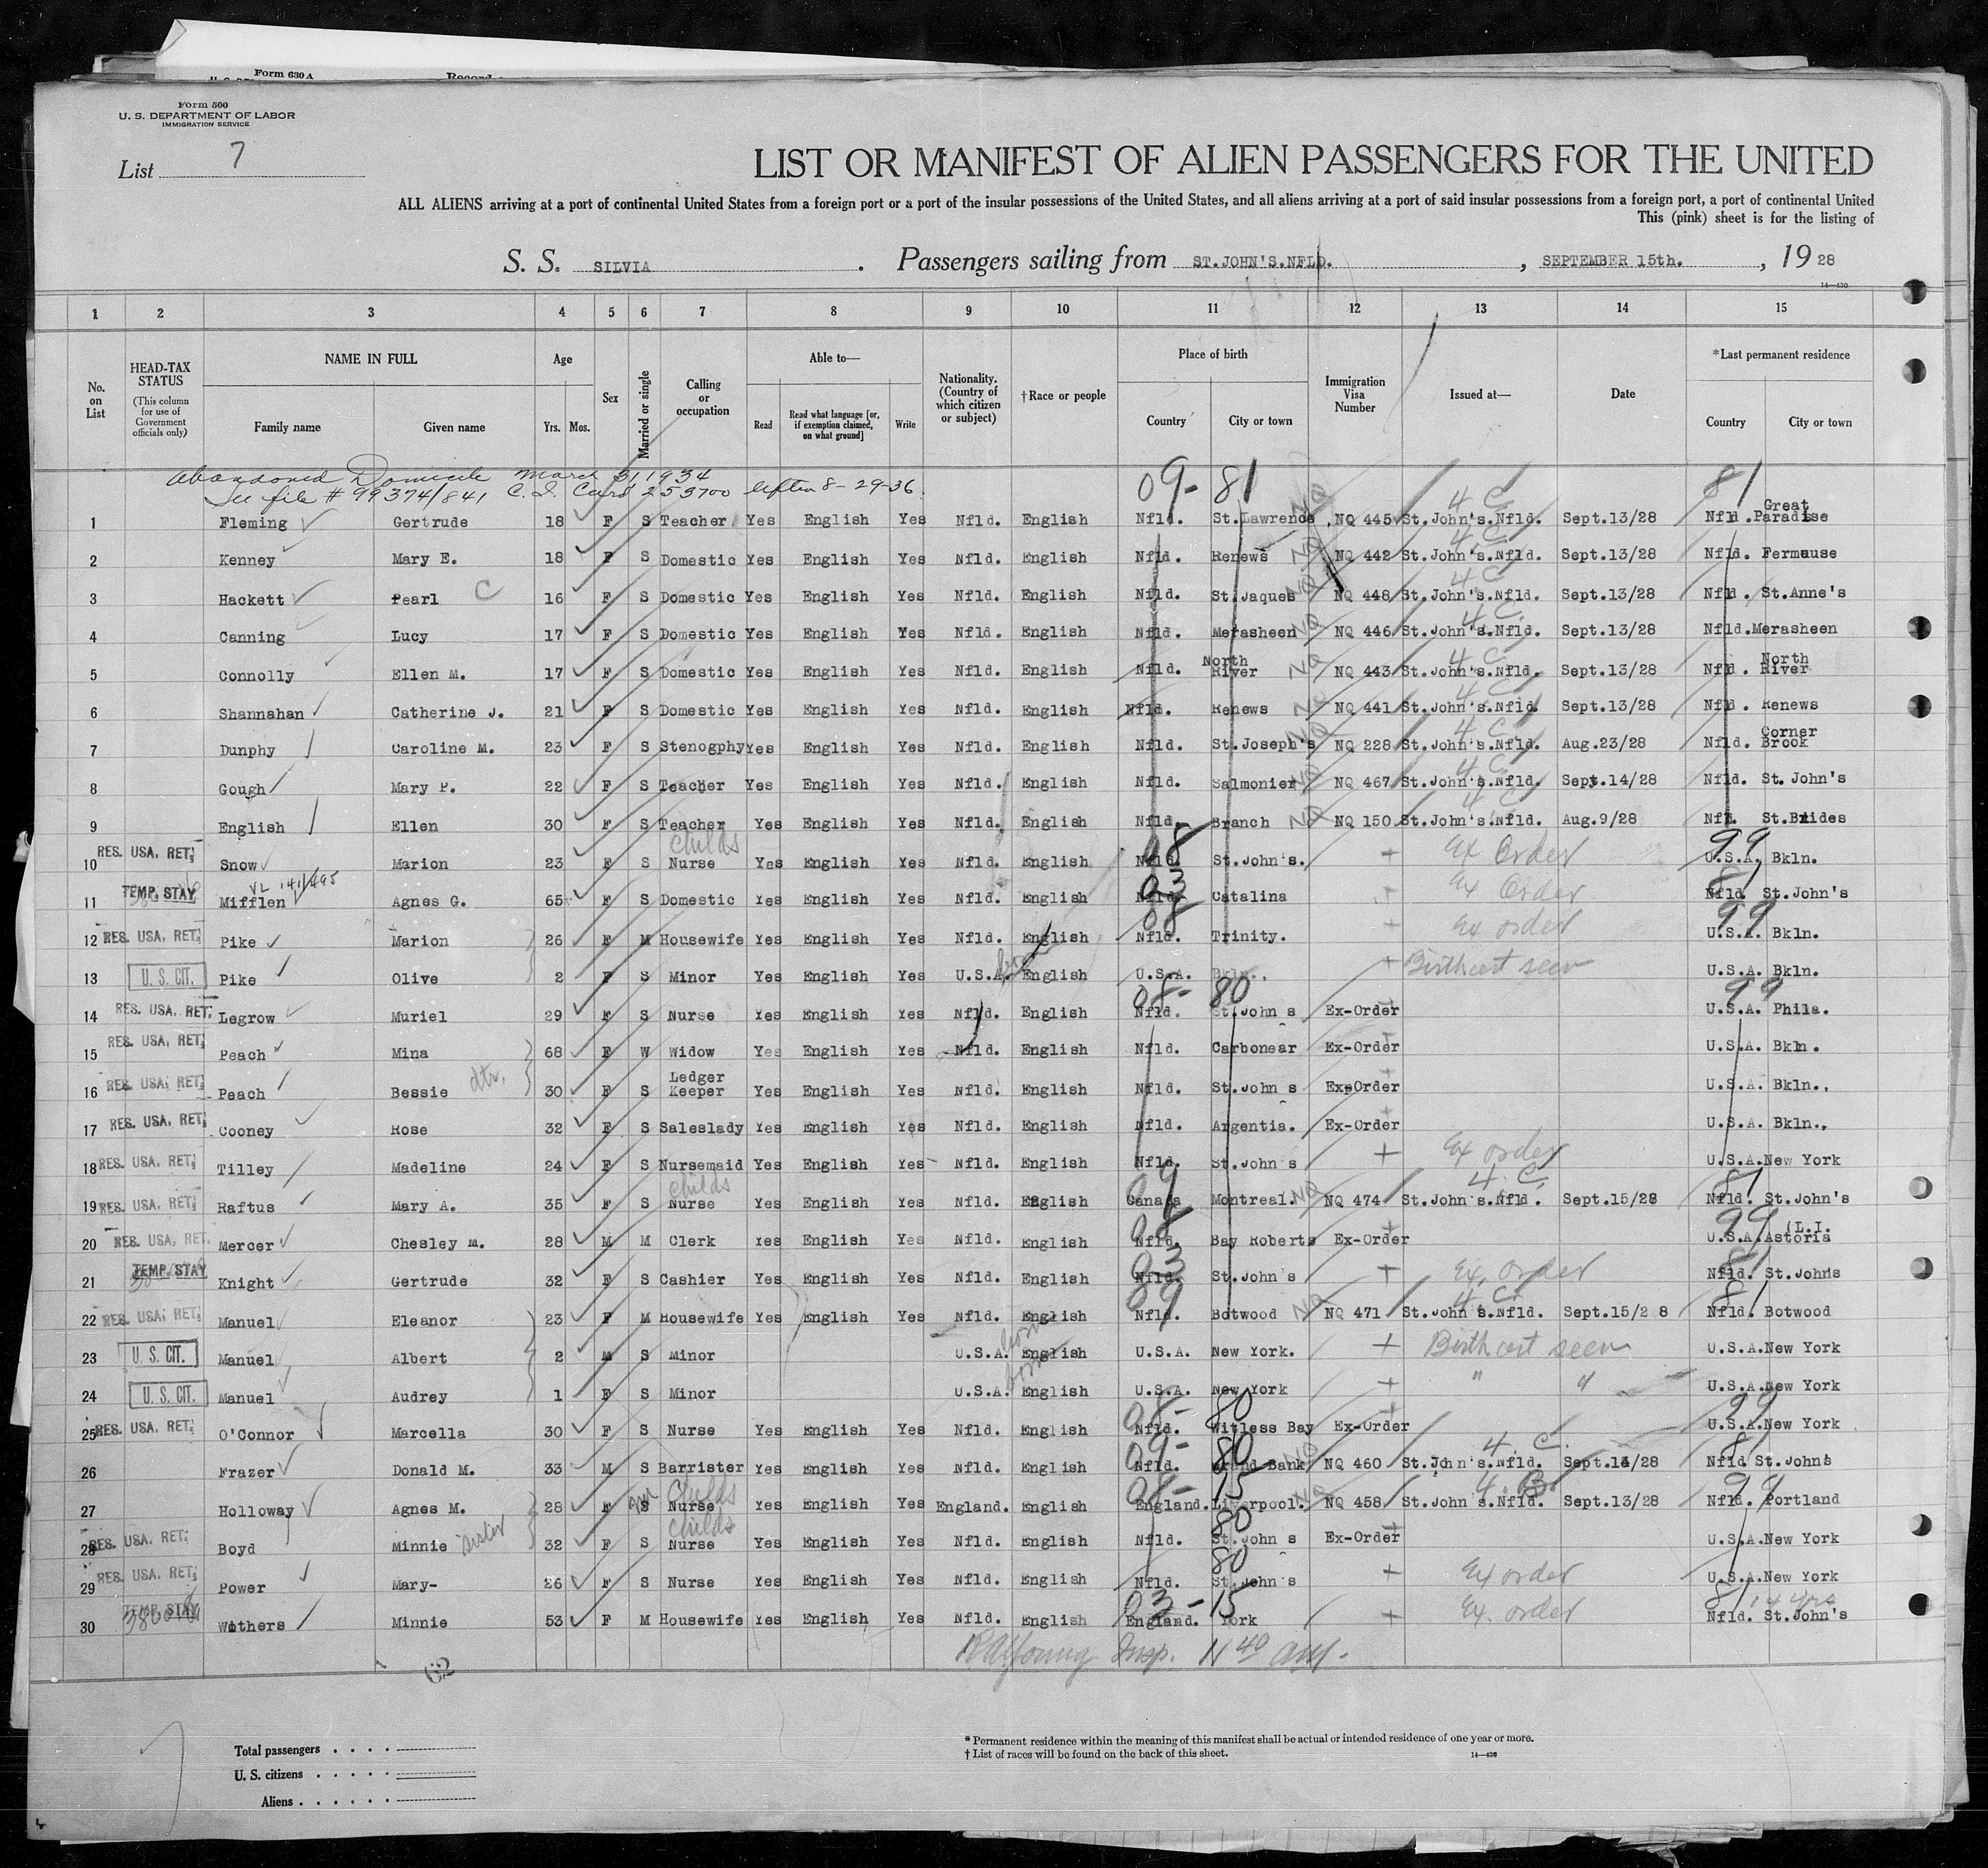 Form 630 A
Record
Form 500
U. S. DEPARTMENT OF LABOR
IMMIGRATION SERVICE
List 7
LIST OR MANIFEST OF ALIEN PASSENGERS FOR THE UNITED
ALL ALIENS arriving at a port of continental United States from a foreign port or a port of the insular possessions of the United States, and all aliens arriving at a port of said insular possessions from a foreign port, a port of continental United
This (pink) sheet is for the listing of
S. S. SILVIA . Passengers sailing from ST.JOHN'S.NFLD. , SEPTEMBER 15th. , 19 28
14—430
1 2 3 4 5 6 7 8 9 10 11 12 13 14 15
No. on List HEAD-TAX STATUS (This column for use of Government officials only) NAME IN FULL Family name Given name Age Yrs. Mos. Sex Married or single Calling or occupation Able to— Read Read what language [or, if exemption claimed, on what ground] Write Nationality. (Country of which citizen or subject) †Race or people Place of birth Country City or town Immigration Visa Number Issued at— Date *Last permanent residence Country City or town
Abandoned Domicile March 31, 1934
See file # 99374/841 C. I. Card 253700 8-29-36.
09- 81 81
1 Fleming Gertrude 18 F S Teacher Yes English Yes Nfld. English Nfld. St.Lawrence NQ NQ 445 4 C. St.John's.Nfld. Sept.13/28 Nfld. Great Paradise
2 Kenney Mary E. 18 F S Domestic Yes English Yes Nfld. English Nfld. Renews NQ NQ 442 4 C. St.John's.Nfld. Sept.13/28 Nfld. Fermeuse
3 Hackett Pearl C 16 F S Domestic Yes English Yes Nfld. English Nfld. St.Jaques NQ NQ 448 4 C St.John's.Nfld. Sept.13/28 Nfld. St.Anne's
4 Canning Lucy 17 F S Domestic Yes English Yes Nfld. English Nfld. Merasheen NQ NQ 446 4 C. St.John's.Nfld. Sept.13/28 Nfld. Merasheen
5 Connolly Ellen M. 17 F S Domestic Yes English Yes Nfld. English Nfld. North River NQ NQ 443 4 C. St.John's.Nfld. Sept.13/28 Nfld. North River
6 Shannahan Catherine J. 21 F S Domestic Yes English Yes Nfld. English Nfld. Renews NQ NQ 441 4 C St.John's.Nfld. Sept.13/28 Nfld. Renews
7 Dunphy Caroline M. 23 F S Stenogphy Yes English Yes Nfld. English Nfld. St.Joseph's NQ NQ 228 4 C. St.John's.Nfld. Aug.23/28 Nfld. Corner Brook
8 Gough Mary P. 22 F S Teacher Yes English Yes Nfld. English Nfld. Salmonier NQ NQ 467 4 C. St.John's.Nfld. Sept.14/28 Nfld. St. John's
9 English Ellen 30 F S Teacher Yes English Yes Nfld. English Nfld. Branch NQ NQ 150 4 C St.John's.Nfld. Aug.9/28 Nfl. St.Brides
10 RES. USA. RET. Snow Marion 23 F S Childs Nurse Yes English Yes Nfld. English 08 Nfld. St.John's. + Ex Order 99 U.S.A. Bkln.
11 TEMP. STAY VL 141/495 Mifflen Agnes G. 65 F S Domestic Yes English Yes Nfld. English 03 Nfld. Catalina + Ex Order 81 Nfld. St.John's
12 RES. USA. RET. Pike Marion 26 F M Housewife Yes English Yes Nfld. English 08 Nfld. Trinity. + Ex order 99 U.S.A. Bkln.
13 U. S. CIT. Pike Olive 2 F S Minor Yes English Yes U.S.A. born English U.S.A. Bkln. + Birth cert seen U.S.A. Bkln.
14 RES. USA. RET. Legrow Muriel 29 F S Nurse Yes English Yes Nfld. English 08- 80 Nfld. St.John s Ex-Order 99 U.S.A. Phila.
15 RES. USA. RET. Peach Mina 68 F W Widow Yes English Yes Nfld. English Nfld. Carbonear Ex-Order U.S.A. Bkln.
16 RES. USA. RET. Peach Bessie dtr. 30 F S Ledger Keeper Yes English Yes Nfld. English Nfld. St.John s Ex-Order U.S.A. Bkln.,
17 RES. USA. RET. Cooney Rose 32 F S Saleslady Yes English Yes Nfld. English Nfld. Argentia. Ex-Order U.S.A. Bkln.,
18 RES. USA. RET. Tilley Madeline 24 F S Nursemaid Yes English Yes Nfld. English Nfld. St.John s + Ex order U.S.A. New York
19 RES. USA. RET. Raftus Mary A. 35 F S Childs Nurse Yes English Yes Nfld. English 09 Canada Montreal. NQ NQ 474 4. C. St.John's.Nfld. Sept.15/28 81 Nfld. St.John's
20 RES. USA. RET. Mercer Chesley M. 28 M M Clerk Yes English Yes Nfld. English 08 Nfld. Bay Roberts + Ex-Order 99 U.S.A. (L.I. Astoria
21 TEMP. STAY Knight Gertrude 32 F S Cashier Yes English Yes Nfld. English 03 Nfld. St.John s + Ex. order 81 Nfld. St.Johns
22 RES. USA. RET. Manuel Eleanor 23 F M Housewife Yes English Yes Nfld. English 09 Nfld. Botwood NQ NQ 471 4. C. St.John s.Nfld. Sept.15/2 8 81 Nfld. Botwood
23 U. S. CIT. Manuel Albert 2 M S Minor U.S.A. born English U.S.A. New York. + Birth cert seen U.S.A. New York
24 U. S. CIT. Manuel Audrey 1 F S Minor U.S.A. born English U.S.A. New York + " " U.S.A. New York
25 RES. USA. RET. O'Connor Marcella 30 F S Nurse Yes English Yes Nfld. English 08- 80 Nfld. Witless Bay Ex-Order 99 U.S.A. New York
26 Frazer Donald M. 33 M S Barrister Yes English Yes Nfld. English 09- 80 Nfld. Grand Bank NQ NQ 460 4. C. St.John's.Nfld. Sept.14/28 81 Nfld St.John's
27 Holloway Agnes M. 28 F S Childs Nurse Yes English Yes England. English 09- 15 England. Liverpool. NQ NQ 458 4. B. St.John s.Nfld. Sept.13/28 99 Nfld. Portland
28 RES. USA. RET. Boyd Minnie sister 32 F S Childs Nurse Yes English Yes Nfld. English 80 Nfld. St.John s Ex-Order U.S.A. New York
29 RES. USA. RET. Power Mary- 26 F S Nurse Yes English Yes Nfld. English 80 Nfld. St.John's + Ex order U.S.A. New York
30 TEMP. STAY Withers Minnie 53 F M Housewife Yes English Yes Nfld. English 03 - 15 England. York + Ex. order 81 14 yrs Nfld. St.John's
Young Insp. 11 40 AM.
62
Total passengers . . . .
U. S. citizens . . . . .
Aliens . . . . . .
* Permanent residence within the meaning of this manifest shall be actual or intended residence of one year or more.
† List of races will be found on the back of this sheet.
14—430